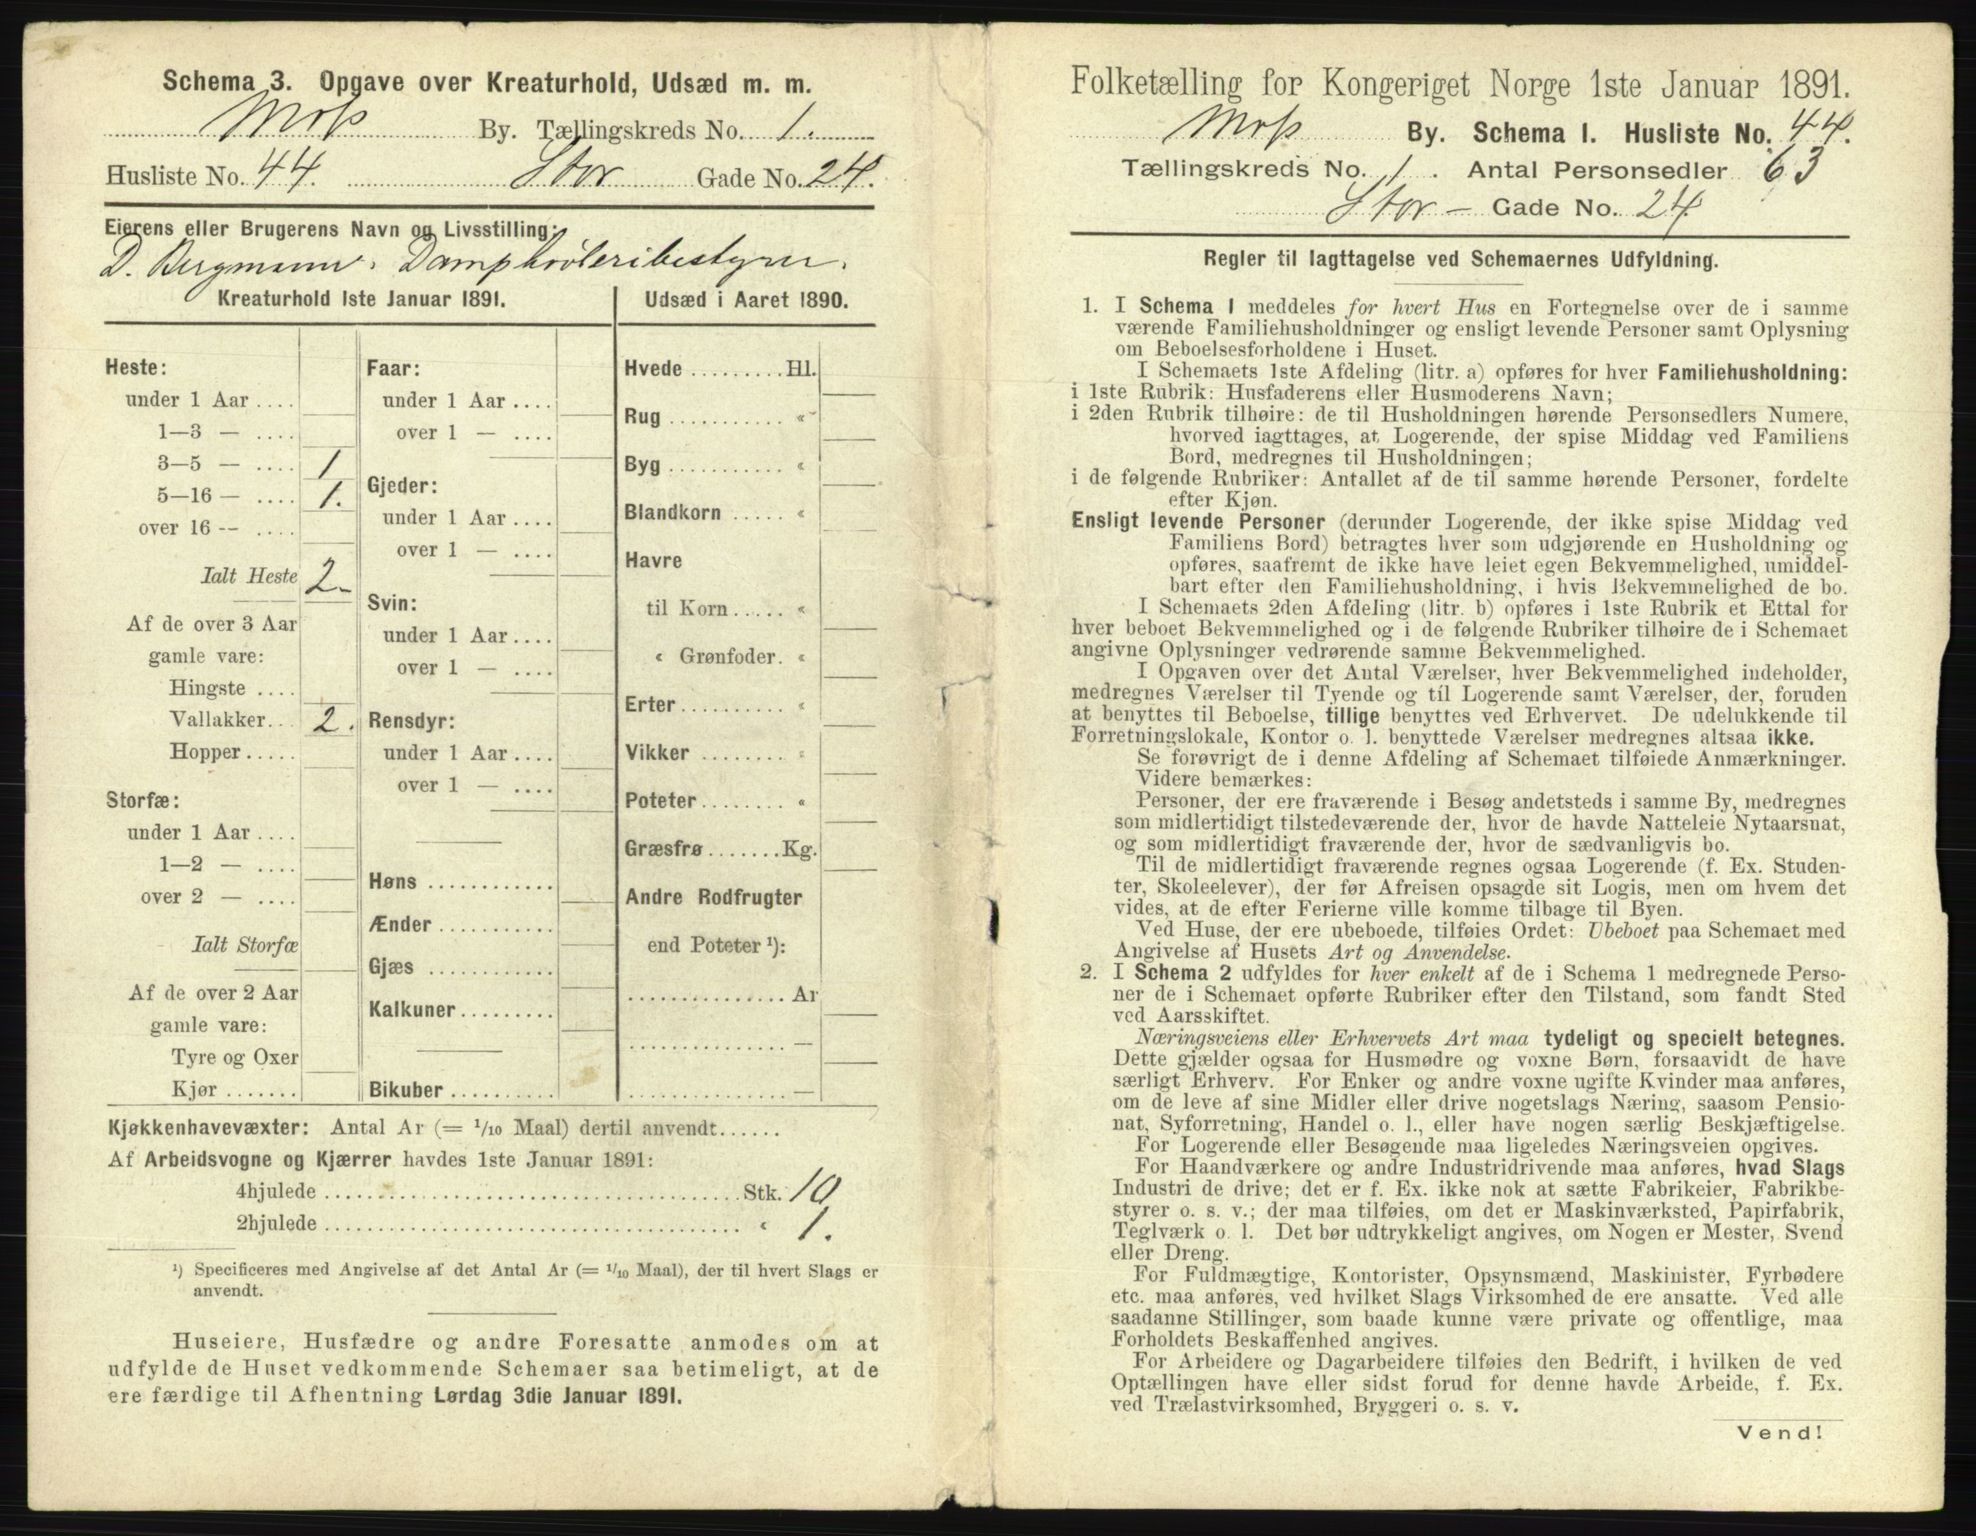 Schema 3. Opgave over Kreaturhold, Udsæd m. m.
Moss By. Tællingskreds No. 1.
Husliste No. 44. Stor Gade No. 24.
Eierens eller Brugerens Navn og Livsstilling:
D. Bergmann. Dampkøkeribestyrer.
Kreaturhold 1ste Januar 1891.
Heste:
under 1 Aar ....
1—3 — ....
3—5 — .... 1
5—16 — .... 1.
over 16 -- ....
Ialt Heste 2-
Af de over 3 Aar
gamle vare:
Hingste ....
Vallakker... 2.
Hopper.....
Storfæ:
under 1 Aar ....
1—2 — ....
over 2 — ....
Ialt Storfæ
Af de over 2 Aar
gamle vare:
Tyre og Oxer
Kjør .......
Faar:
under 1 Aar ....
over 1 — ....
Gjeder:
under 1 Aar ....
over 1 — ....
Svin:
under 1 Aar ....
over 1 — ....
Rensdyr:
under 1 Aar ....
over 1 — ....
Høns ............
Ænder ...........
Gjæs ............
Kalkuner.........
Bikuber ..........
Udsæd i Aaret 1890.
Hvede ......... Hl.
Rug ........... «
Byg ........... «
Blandkorn ..... «
Havre
til Korn ..... «
« Grønfoder. «
Erter.......... «
Vikker ........ «
Poteter........ «
Græsfrø ....... Kg.
Andre Rodfrugter
end Poteter ¹):
............... Ar
............... —
............... —
Kjøkkenhavevæxter: Antal Ar (= 1/10 Maal) dertil anvendt......
Af Arbeidsvogne og Kjærrer havdes 1ste Januar 1891:
4hjulede ........................................ Stk. 10
2hjulede ........................................ « 1.
¹) Specificeres med Angivelse af det Antal Ar (= 1/10 Maal), der til hvert Slags er
anvendt.
Huseiere, Husfædre og andre Foresatte anmodes om at
udfylde de Huset vedkommende Schemaer saa betimeligt, at de
ere færdige til Afhentning Lørdag 3die Januar 1891.
Folketælling for Kongeriget Norge 1ste Januar 1891.
Moss By. Schema I. Husliste No. 44.
Tællingskreds No. 1. Antal Personsedler 63
Stor - Gade No. 24
Regler til Iagttagelse ved Schemaernes Udfyldning.
1. I Schema 1 meddeles for hvert Hus en Fortegnelse over de i samme
værende Familiehusholdninger og ensligt levende Personer samt Oplysning
om Beboelsesforholdene i Huset.
I Schemaets 1ste Afdeling (litr. a) opføres for hver Familiehusholdning:
i 1ste Rubrik: Husfaderens eller Husmoderens Navn;
i 2den Rubrik tilhøire: de til Husholdningen hørende Personsedlers Numere,
hvorved iagttages, at Logerende, der spise Middag ved Familiens
Bord, medregnes til Husholdningen;
i de følgende Rubriker: Antallet af de til samme hørende Personer, fordelte
efter Kjøn.
Ensligt levende Personer (derunder Logerende, der ikke spise Middag ved
Familiens Bord) betragtes hver som udgjørende en Husholdning og
opføres, saafremt de ikke have leiet egen Bekvemmelighed, umiddel-
bart efter den Familiehusholdning, i hvis Bekvemmelighed de bo.
I Schemaets 2den Afdeling (litr. b) opføres i 1ste Rubrik et Ettal for
hver beboet Bekvemmelighed og i de følgende Rubriker tilhøire de i Schemaet
angivne Oplysninger vedrørende samme Bekvemmelighed.
I Opgaven over det Antal Værelser, hver Bekvemmelighed indeholder,
medregnes Værelser til Tyende og til Logerende samt Værelser, der, foruden
at benyttes til Beboelse, tillige benyttes ved Erhvervet. De udelukkende til
Forretningslokale, Kontor o. l. benyttede Værelser medregnes altsaa ikke.
Se forøvrigt de i denne Afdeling af Schemaet tilføiede Anmærkninger.
Videre bemærkes:
Personer, der ere fraværende i Besøg andetsteds i samme By, medregnes
som midlertidigt tilstedeværende der, hvor de havde Natteleie Nytaarsnat,
og som midlertidigt fraværende der, hvor de sædvanligvis bo.
Til de midlertidigt fraværende regnes ogsaa Logerende (f. Ex. Studen-
ter, Skoleelever), der før Afreisen opsagde sit Logis, men om hvem det
vides, at de efter Ferierne ville komme tilbage til Byen.
Ved Huse, der ere ubeboede, tilføies Ordet: Ubeboet paa Schemaet med
Angivelse af Husets Art og Anvendelse.
2. I Schema 2 udfyldes for hver enkelt af de i Schema 1 medregnede Perso-
ner de i Schemaet opførte Rubriker efter den Tilstand, som fandt Sted
ved Aarsskiftet.
Næringsveiens eller Erhvervets Art maa tydeligt og specielt betegnes.
Dette gjælder ogsaa for Husmødre og voxne Børn, forsaavidt de have
særligt Erhverv. For Enker og andre voxne ugifte Kvinder maa anføres,
om de leve af sine Midler eller drive nogetslags Næring, saasom Pensio-
nat, Syforretning, Handel o. l., eller have nogen særlig Beskjæftigelse.
For Logerende eller Besøgende maa ligeledes Næringsveien opgives.
For Haandværkere og andre Industridrivende maa anføres, hvad Slags
Industri de drive; det er f. Ex. ikke nok at sætte Fabrikeier, Fabrikbe-
styrer o. s. v.; der maa tilføies, om det er Maskinværksted, Papirfabrik,
Teglværk o. l. Det bør udtrykkeligt angives, om Nogen er Mester, Svend
eller Dreng.
For Fuldmægtige, Kontorister, Opsynsmænd, Maskinister, Fyrbødere
etc. maa anføres, ved hvilket Slags Virksomhed de ere ansatte. Ved alle
saadanne Stillinger, som baade kunne være private og offentlige, maa
Forholdets Beskaffenhed angives.
For Arbeidere og Dagarbeidere tilføies den Bedrift, i hvilken de ved
Optællingen have eller sidst forud for denne havde Arbeide, f. Ex.
ved Trælastvirksomhed, Bryggeri o. s. v.
Vend!